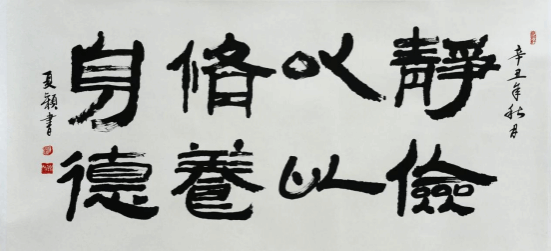 辛丑年秋月
靜以脩身
儉以養德
夏穎書